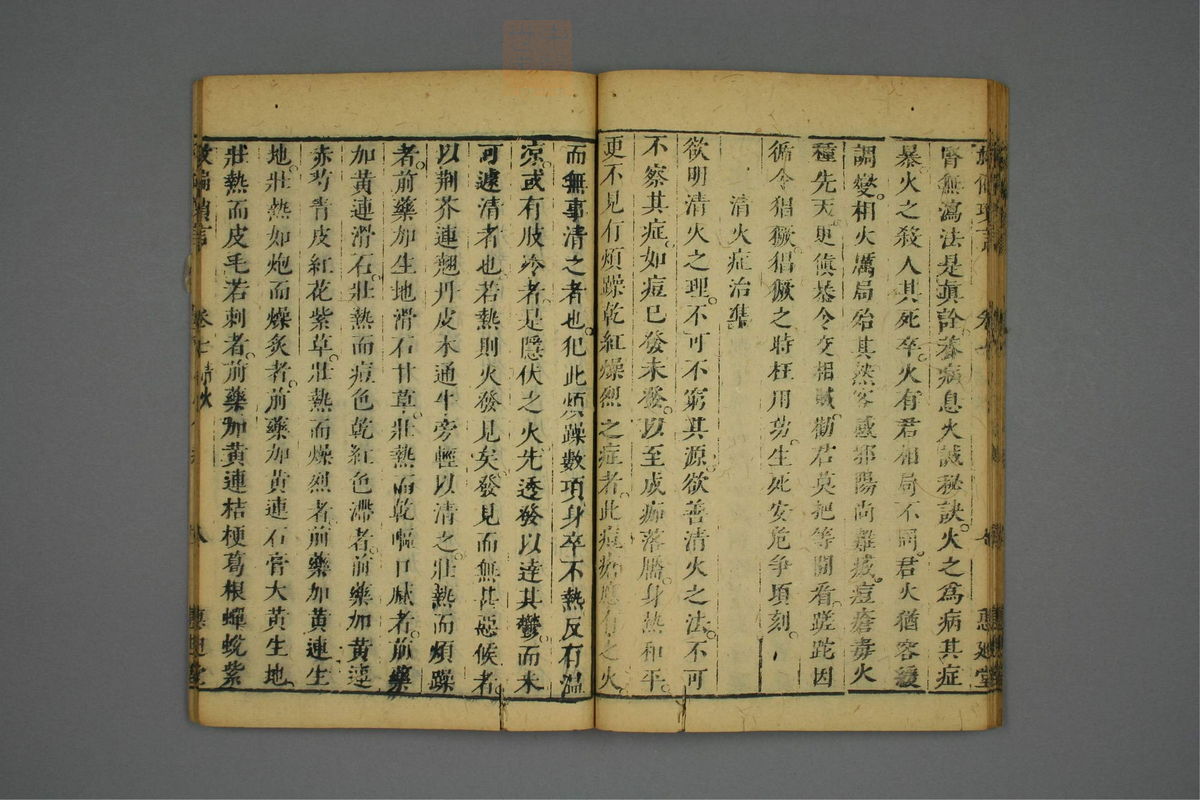 腎無瀉法是真詮養癀息火誠秘訣火之為病其症
暴火之殺人其死卒火有君相局不同君火猶容緩
調變相火厲局殆其然客感邪陽尚難疲痘瘡毒火
種先天更傎恭令交相賊勸君莫把等閒看蹉跎因
循令猖獗猖獗之時枉用功生死安危爭頃刻
清火症治集
欲明清火之理不可不窮其源欲善清火之法不可
不察其症如痘已發未發以至成痂落靨身熱和平
更不見有煩躁乾紅燥烈之症者此痘瘡應有之火
而無事清之者也犯此煩躁數項身卒不熱反有温
凉或有肢冷者是隱伏之火先透發以逹其鬱而未
可遽清者也若熱則火發見矣發見而無甚惡候者
以荆芥連翹丹皮木通牛旁輕以清之壯熱而煩躁
者前藥加生地滑石甘草壯熱而乾嘔口膩者前藥
加黃連滑石壯熱而痘色乾紅色滯者前藥加黃連
赤芍青皮紅花紫草壯熱而燥烈者前藥加黃連生
地壯熱如炮而燥炙者前藥加黃連石膏大黃生地
壯熱而皮毛若刺者前藥加黃連桔梗葛根蟬蛻紫
卷七清火
八